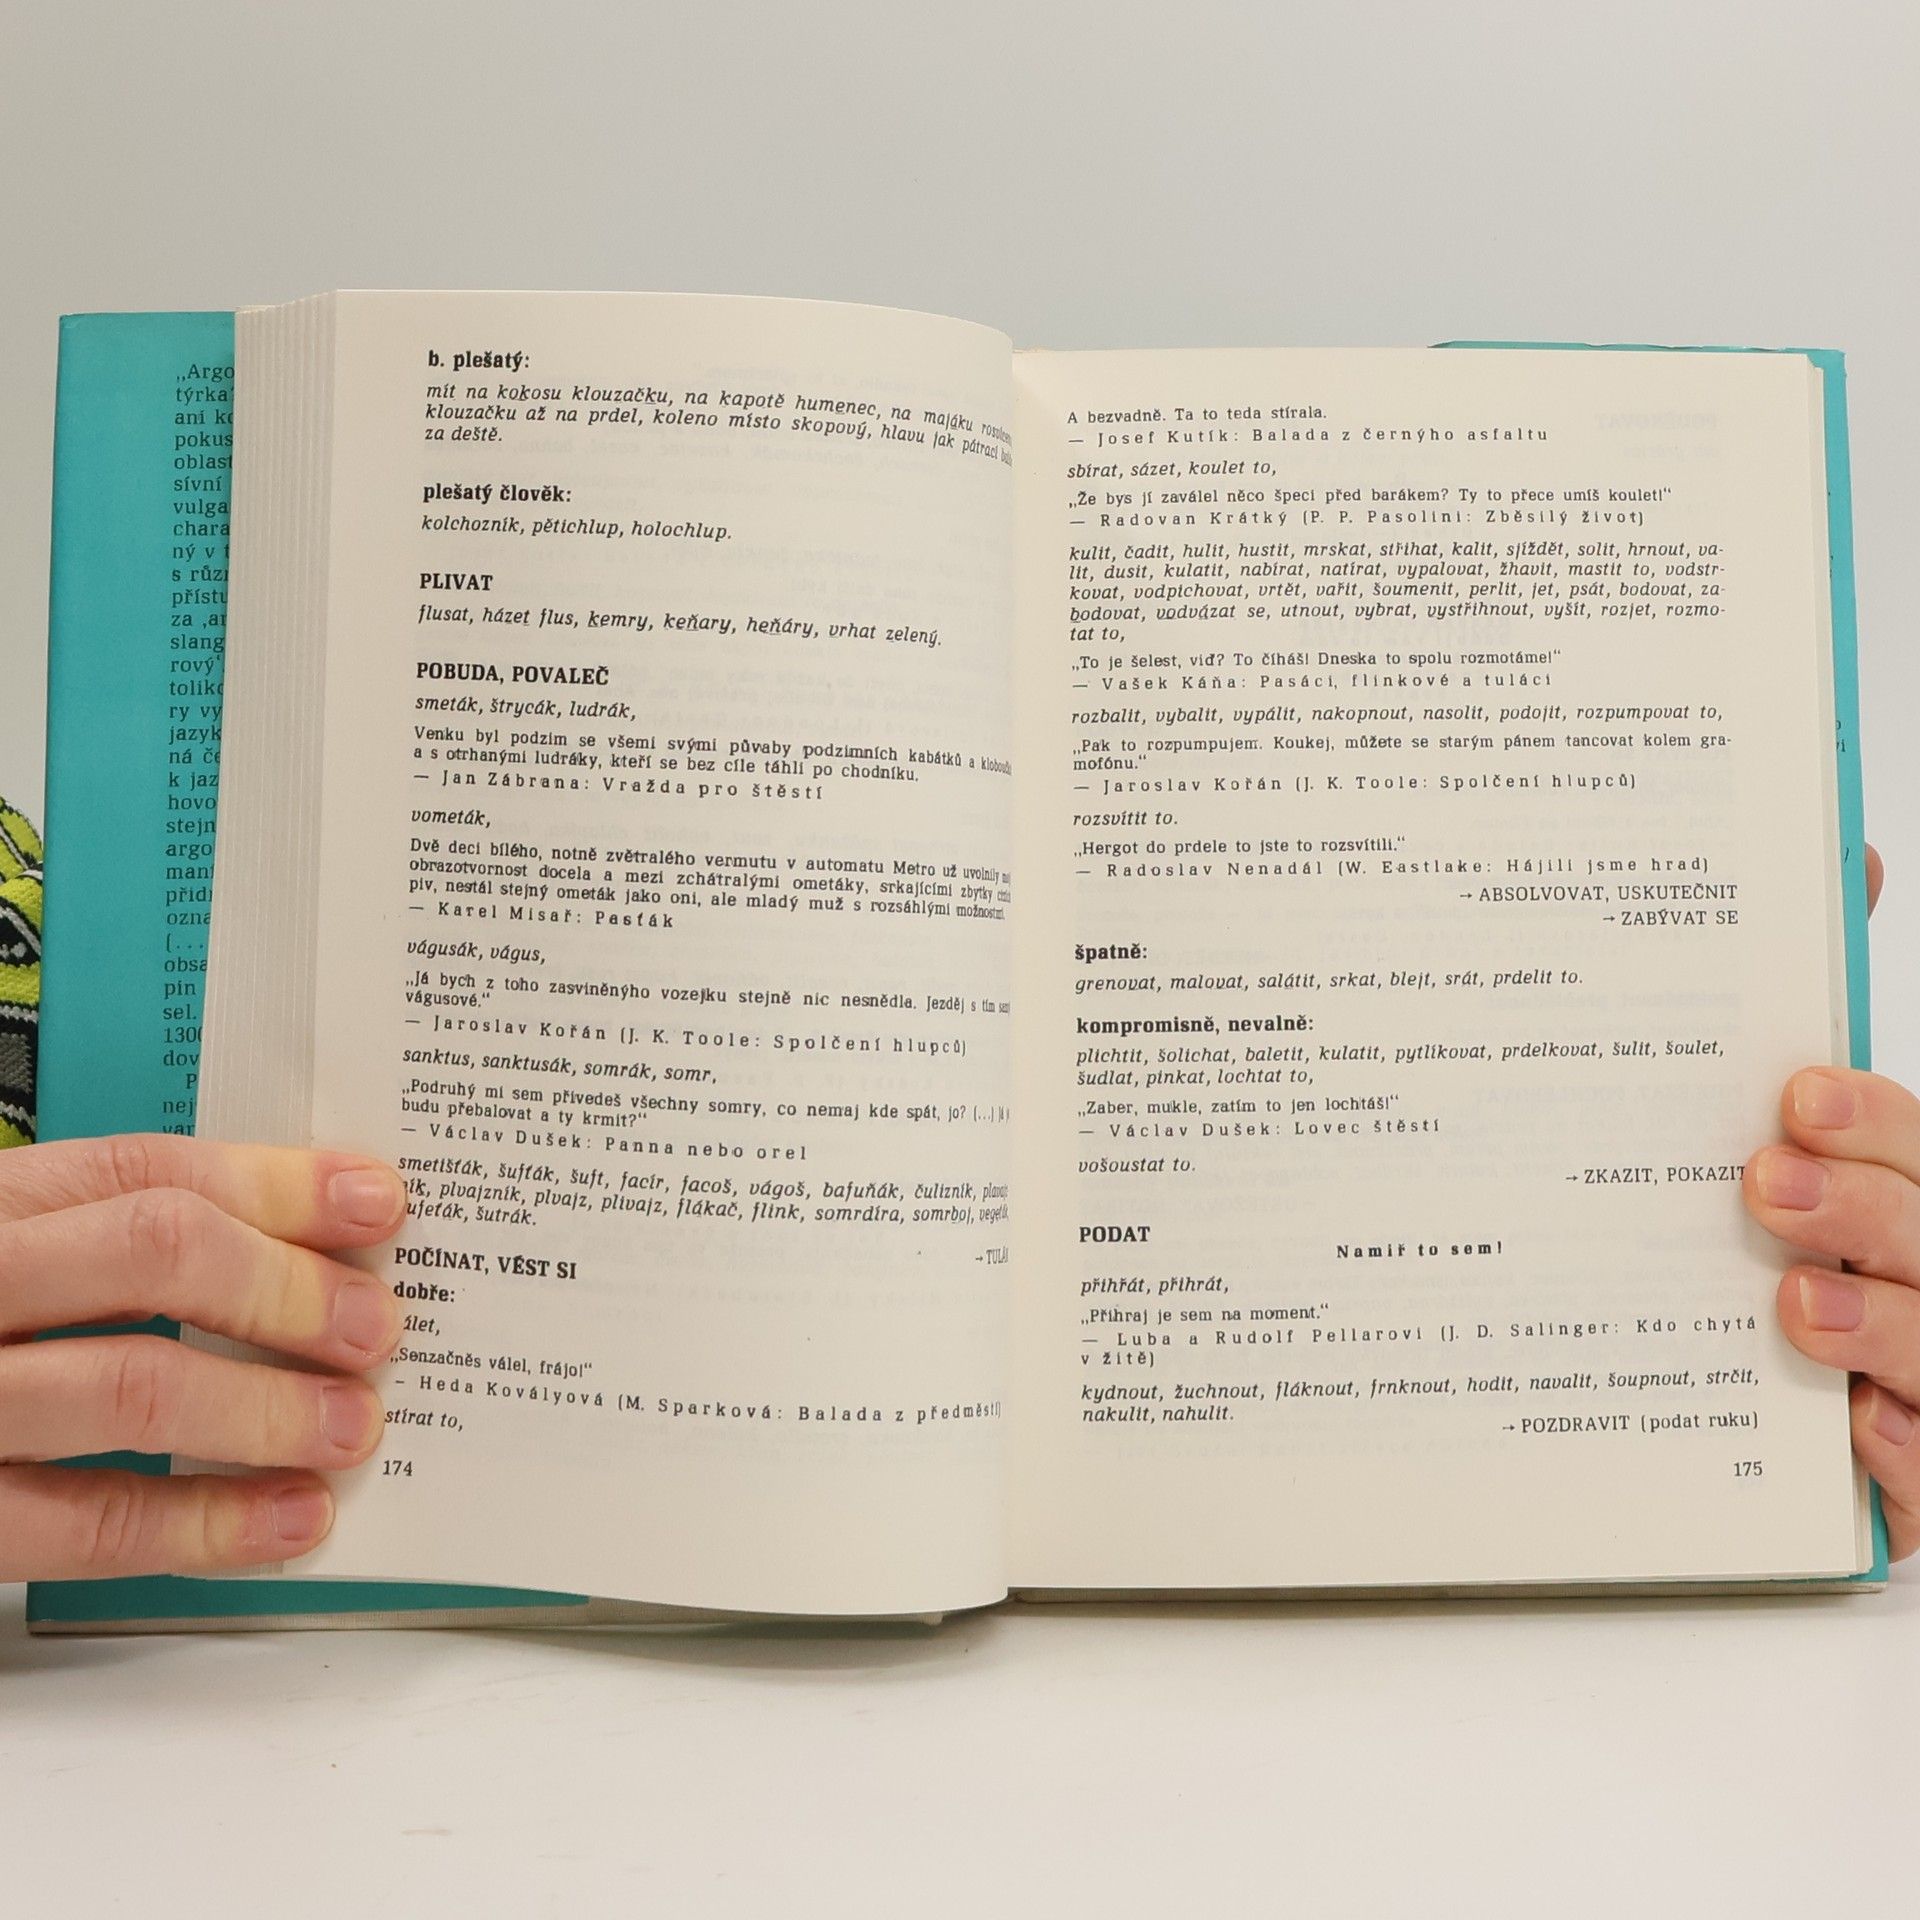 „Argo
týrka
ani ko
pokus
oblast
sívní
vulga
chara
ný v t
s různ
přístu
za ‚ar
slang
rový‘
tolik
ry vy
jazyk
ná če
k jaz
hovo
stejn
argo
mani
přidr
ozna
(...
obsa
pin
sel.
1300
dov
P
nej
var
b. plešatý:
mít na kokosu klouzačku, na kapotě humenec, na majáku
klouzačku až na prdel, koleno místo skopový, hlavu jak pátrací
za deště.
plešatý člověk:
kolchozník, pětichlup, holochlup.
PLIVAT
flusat, házet flus, kemry, keňary, heňáry, vrhat zelený.
POBUDA, POVALEČ
smeták, štrycák, ludrák,
Venku byl podzim se všemi svými půvaby podzimních kabátků a
a s otrhanými ludráky, kteří se bez cíle táhli po chodníku.
— Jan Zábrana: Vražda pro štěstí
vometák,
Dvě deci bílého, notně zvětralého vermutu v automatu Metro už uvolnily
obrazotvornost docela a mezi zchátralými ometáky, srkajícími zbytky
piv, nestál stejný ometák jako oni, ale mladý muž s rozsáhlými možnostmi.
— Karel Misař: Pasťák
vágusák, vágus,
„Já bych z toho zasviněnýho vozejku stejně nic nesnědla. Jezděj s tím
vágusové.“
— Jaroslav Kořán (J. K. Toole: Spolčení hlupců)
sanktus, sanktusák, somrák, somr,
„Podruhý mi sem přivedeš všechny somry, co nemaj kde spát, jo? (...)
budu přebalovat a ty krmit?“
— Václav Dušek: Panna nebo orel
smetišťák, šufťák, šuft, facír, facoš, vágoš, bafuňák, čulizník,
ník, plvajzník, plvajz, plivajz, flákač, flink, somrdíra, somrboj,
ufeťák, šutrák.
→ TULÁ
POČÍNAT, VÉST SI
dobře:
álet,
„Senzačněs válel, frájo!“
— Heda Kovályová (M. Sparková: Balada z předměstí)
stírat to,
174
A bezvadně. Ta to teda stírala.
— Josef Kutík: Balada z černýho asfaltu
sbírat, sázet, koulet to,
„Že bys jí zaválel něco špeci před barákem? Ty to přece umíš koulet!“
— Radovan Krátký (P. P. Pasolini: Zběsilý život)
kulit, čadit, hulit, hustit, mrskat, stříhat, kalit, sjíždět, solit, hrnout, va-
lit, dusit, kulatit, nabírat, natírat, vypalovat, žhavit, mastit to, vodstr-
kovat, vodpichovat, vrtět, vařit, šoumenit, perlit, jet, psát, bodovat, za-
bodovat, vodvázat se, utnout, vybrat, vystřihnout, vyšít, rozjet, rozmo-
tat to,
„To je šelest, viď? To číháš! Dneska to spolu rozmotáme!“
— Vašek Káňa: Pasáci, flinkové a tuláci
rozbalit, vybalit, vypálit, nakopnout, nasolit, podojit, rozpumpovat to,
„Pak to rozpumpujem. Koukej, můžete se starým pánem tancovat kolem gra-
mofónu.“
— Jaroslav Kořán (J. K. Toole: Spolčení hlupců)
rozsvítit to.
„Hergot do prdele to jste to rozsvítili.“
— Radoslav Nenadál (W. Eastlake: Hájili jsme hrad)
→ ABSOLVOVAT, USKUTEČNIT
→ ZABÝVAT SE
špatně:
grenovat, malovat, salátit, srkat, blejt, srát, prdelit to.
kompromisně, nevalně:
plichtit, šolichat, baletit, kulatit, pytlíkovat, prdelkovat, šulit, šoulet,
šudlat, pinkat, lochtat to,
„Zaber, mukle, zatím to jen lochtáš!“
— Václav Dušek: Lovec štěstí
vošoustat to.
→ ZKAZIT, POKAZIT
PODAT
Namiř to sem!
přihřát, přihrát,
„Přihraj je sem na moment.“
— Luba a Rudolf Pellarovi (J. D. Salinger: Kdo chytá
v žitě)
kydnout, žuchnout, fláknout, frnknout, hodit, navalit, šoupnout, strčit,
nakulit, nahulit.
→ POZDRAVIT (podat ruku)
175